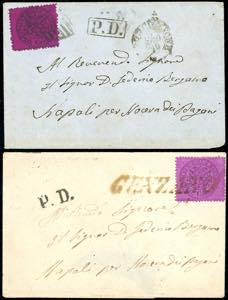 P.D.
Al Reverendo Signore
Il Signor D. Federico Bergamo
Napoli per Nocera dei Pagani
GENZANO
P.D.
Al Signore
Il Signor D. Federico Bergamo
Napoli per Nocera dei Pagani